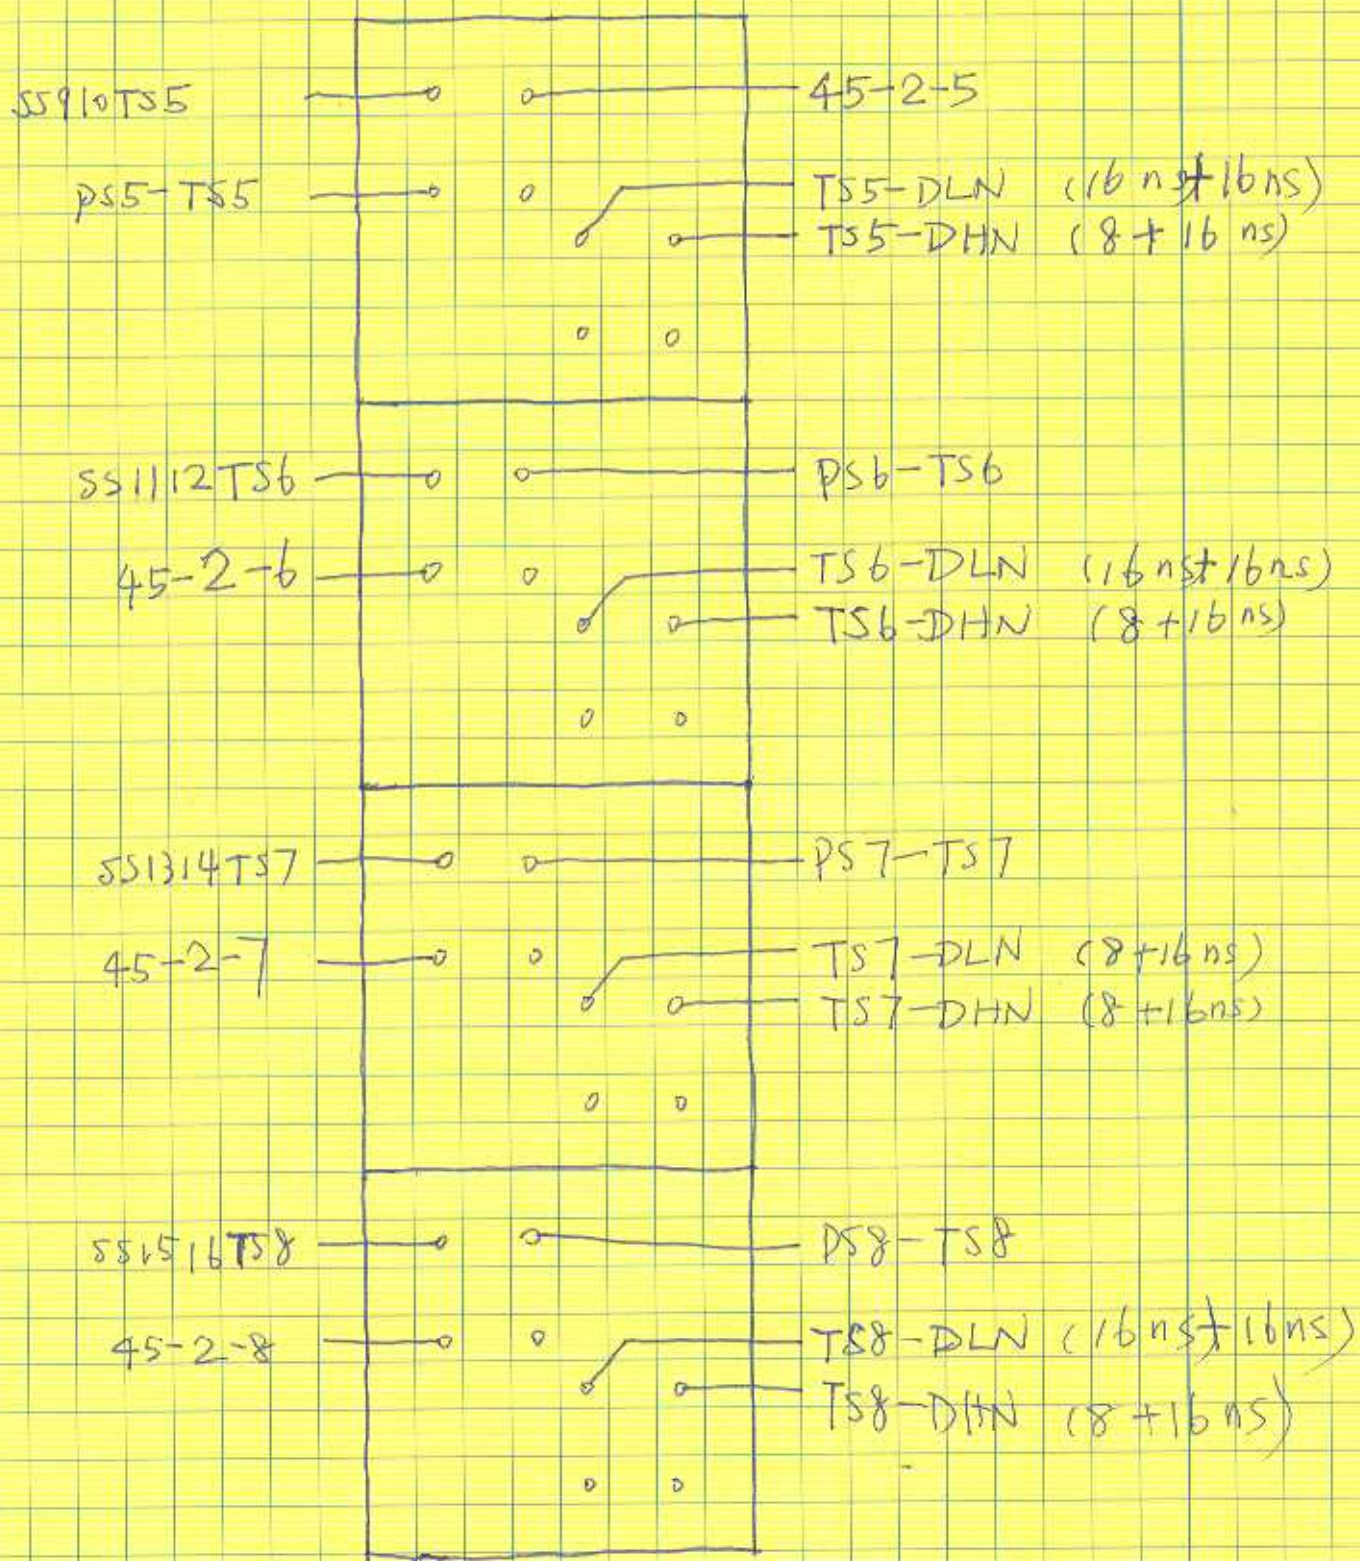 SS910TS5 45-2-5
PS5-TS5 TS5-DLN (16 ns+16 ns)
TS5-DHN (8+16 ns)
SS1112TS6 PS6-TS6
45-2-6 TS6-DLN (16 ns+16 ns)
TS6-DHN (8+16 ns)
SS1314TS7 PS7-TS7
45-2-7 TS7-DLN (8+16 ns)
TS7-DHN (8+16 ns)
SS1516TS8 PS8-TS8
45-2-8 TS8-DLN (16 ns)+16 ns)
TS8-DHN (8+16 ns)